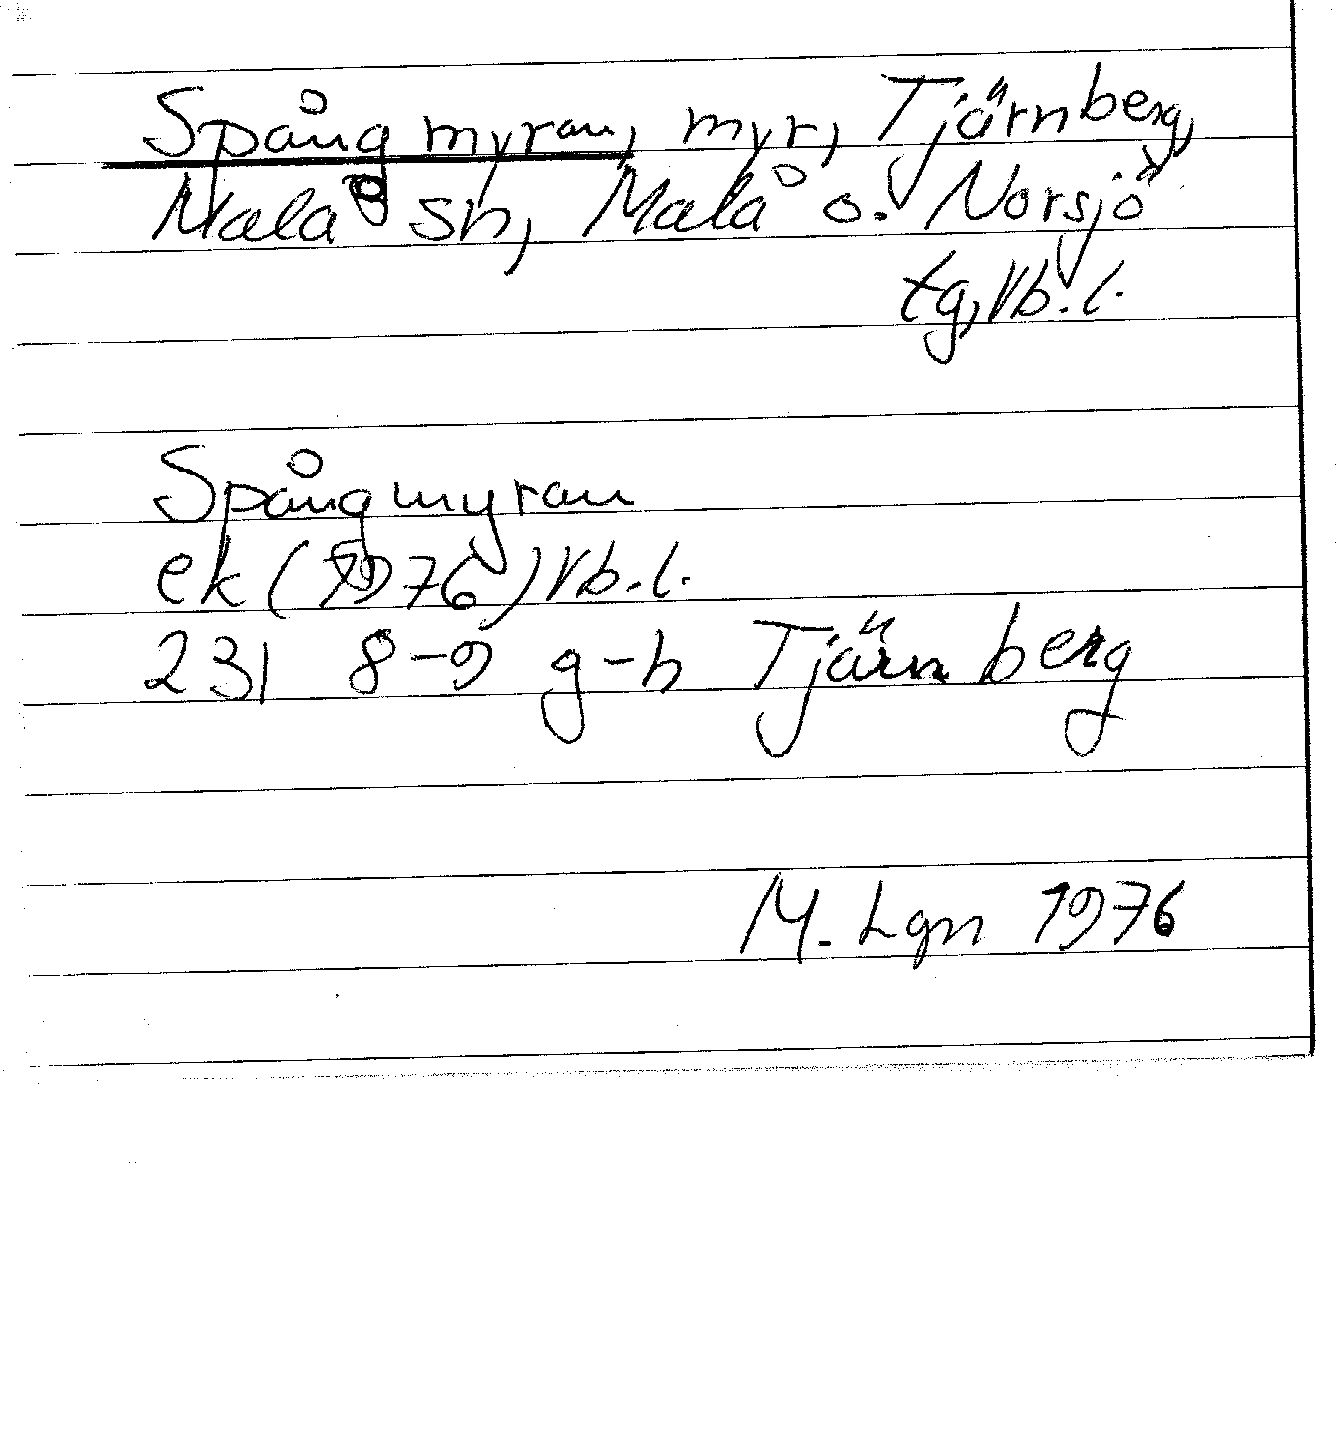 Spångmyran, myr, Tjärnberg,
Malå sn, Malå o. Norsjö
tg, Vb.l.
Spångmyran
ek (1976) Vb.l.
231 8-9 g-h Tjärnberg
M. Lgn 1976